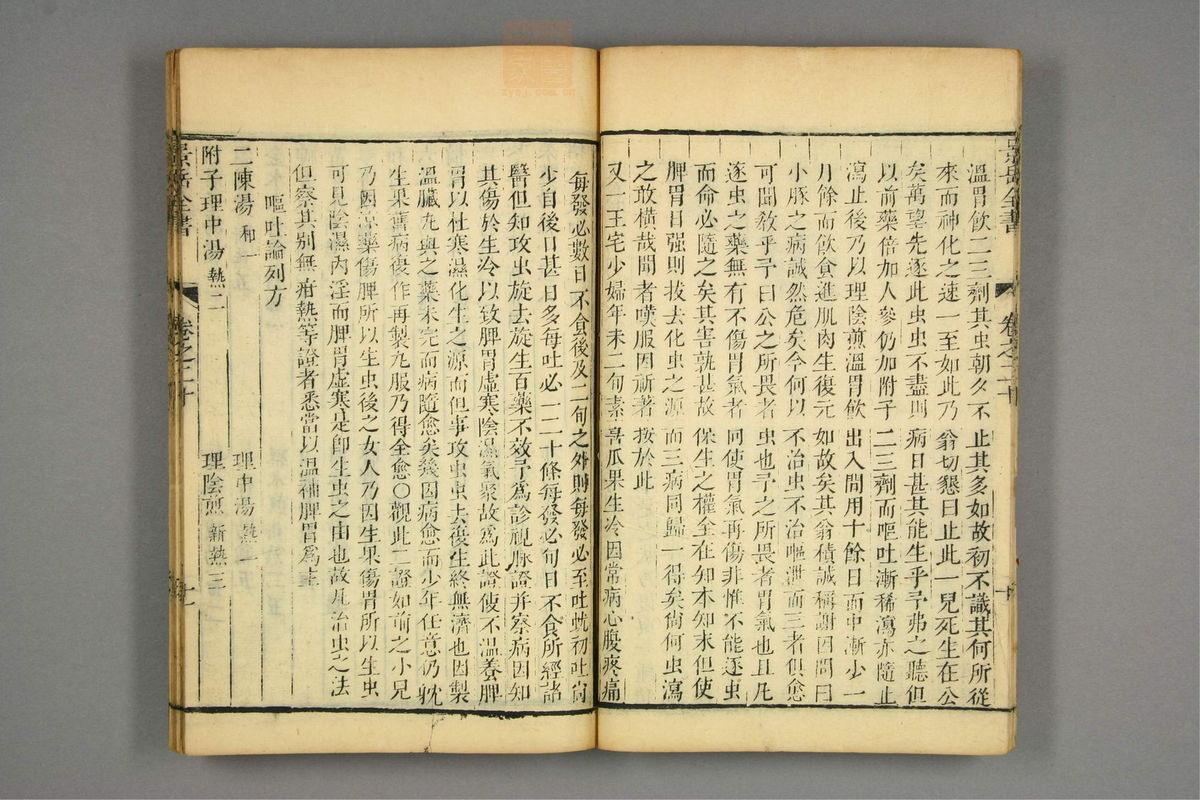 景岳全書
卷之二十
溫胃飲二三劑其虫朝夕不止其多如故初不識其何所從
來而神化之速一至如此乃翁切懇曰止此一兒死生在公
矣萬望先逐此虫虫不盡則病日甚其能生乎予弗之聽但
以前藥倍加人參仍加附子二三劑而嘔吐漸稀瀉亦隨止
瀉止後乃以理陰煎溫胃飲出入間用十餘日而虫漸少一
月餘而飲食進肌肉生復元如故矣其翁積誠稱謝因問曰
小豚之病誠然危矣今何以不治虫不治嘔泄而三者俱愈
可聞敎乎予曰公之所畏者虫也予之所畏者胃氣也且凡
逐虫之藥無有不傷胃氣者向使胃氣再傷非惟不能逐虫
而命必隨之矣其害孰甚故保生之權全在知本知末但使
脾胃日强則拔去化虫之源而三病同歸一得矣尚何虫瀉
之敢橫哉聞者嘆服因并著按於此
又一王宅少婦年未二旬素喜瓜果生冷因常病心腹疼痛
每發必數日不食後及二旬之外則每發必至吐蚘初吐尚
少自後日甚日多每吐必一二十條每發必旬日不食所經諸
醫但知攻虫旋去旋生百藥不效予爲診視脉證并察病因知
其傷於生冷以致脾胃虛寒陰濕氣聚故爲此證使不溫養脾
胃以杜寒濕化生之源而但事攻虫虫去復生終無濟也因製
溫臟丸與之藥未完而病隨愈矣後因病愈而少年任意仍躭
生果舊病復作再製丸服乃得全愈〇觀此二證如前之小兒
乃因凉藥傷脾所以生虫後之女人乃因生果傷胃所以生虫
可見陰濕內淫而脾胃虛寒是卽生虫之由也故凡治虫之法
但察其别無疳熱等證者悉當以溫補脾胃爲主
嘔吐論列方
二陳湯 和一 理中湯 熱一
附子理中湯 熱二 理陰煎 新熱三
景岳全書
卷之二十